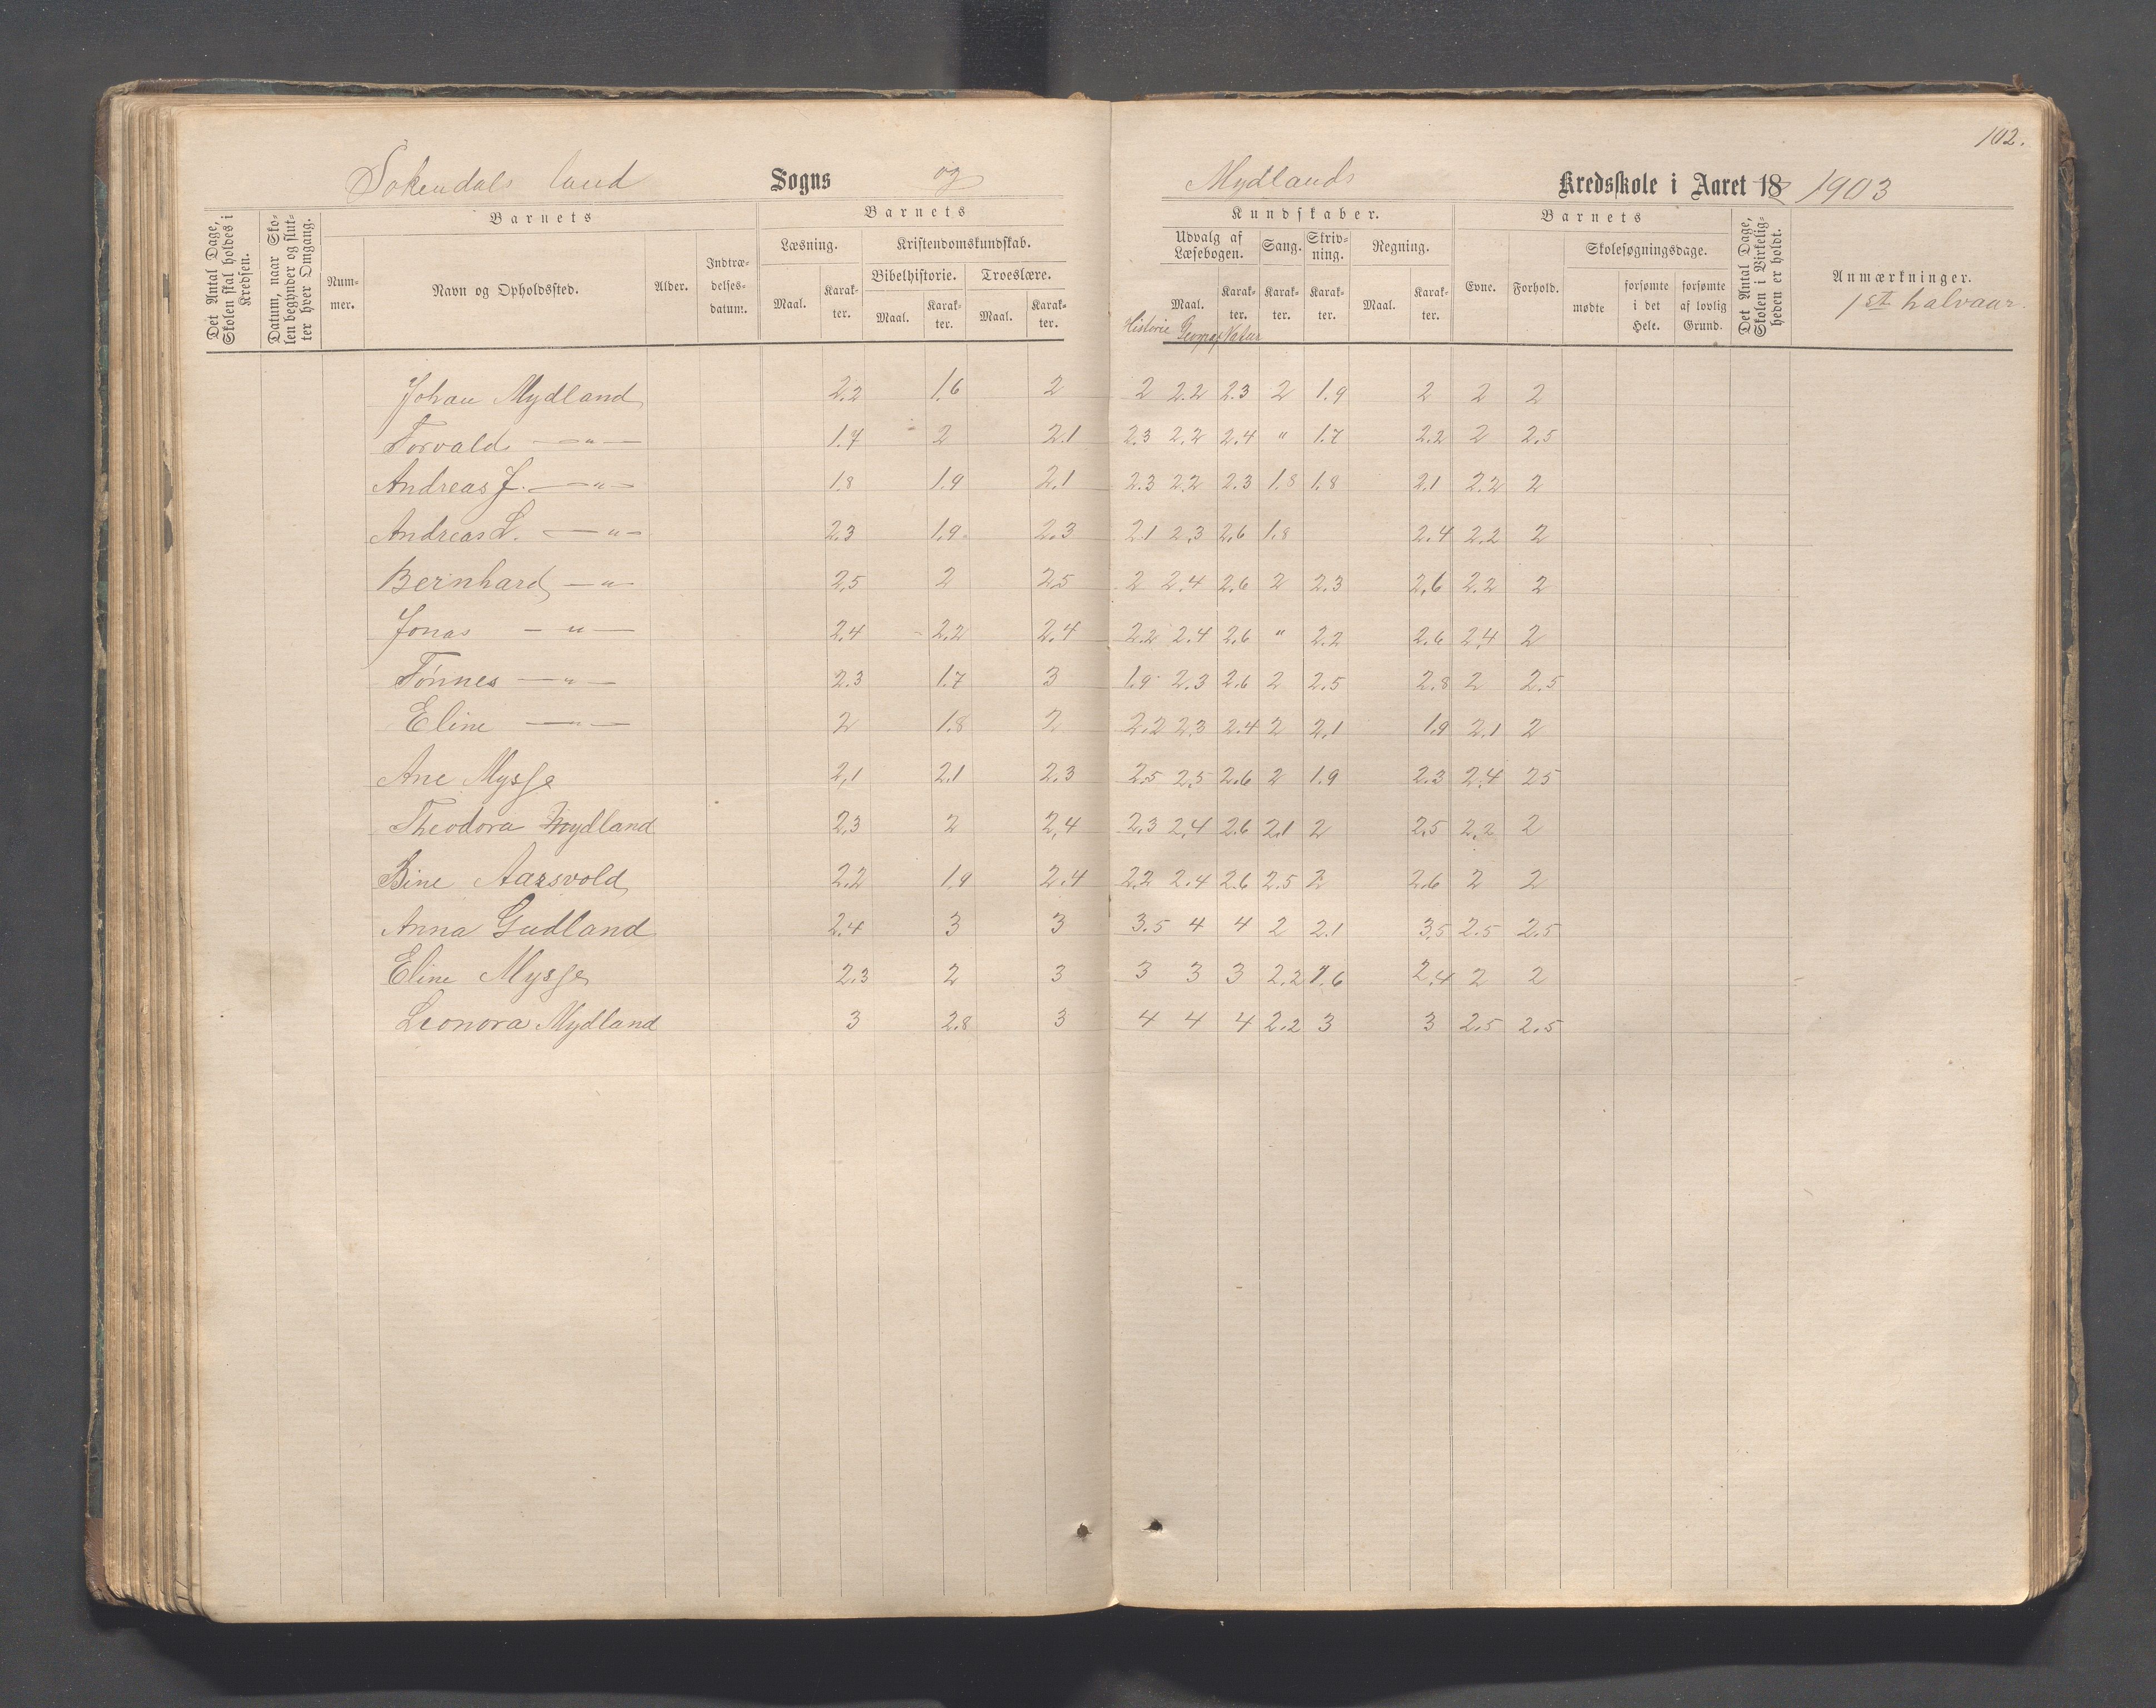 102.
Sokendals land Sogns og Mydlands Kredsskole i Aaret 18 1903
Det Antal Dage, Skolen skal holdes i Kredsen.
Datum, naar Skolen begynder og slutter hver Omgang.
Barnets
Nummer.
Navn og Opholdssted.
Alder.
Indtrædelsesdatum.
Barnets Kundskaber.
Læsning.
Maal. Karakter.
Kristendomskundskab.
Bibelhistorie. Troeslære.
Maal. Karakter. Maal. Karakter.
Udvalg af Læsebogen. Sang. Skrivning. Regning.
Maal. Karakter. Karakter. Karakter. Maal. Karakter.
Historie Geograf Natur
Barnets
Evne. Forhold. Skolesøgningsdage.
mødte forsømte i det Hele. forsømte af lovlig Grund.
Det Antal Dage, Skolen i Virkeligheden er holdt.
Anmærkninger.
1ste halvaar
Johan Mydland 2.2 1.6 2 2 2.2 2.3 2 1.9 2 2 2
Torvald — " — 1.7 2 2.1 2.3 2.2 2.4 " 1.7 2.2 2 2.5
Andreas J. — " — 1.8 1.9 2.1 2.3 2.2 2.3 1.8 1.8 2.1 2.2 2
Andreas L. — " — 2.3 1.9 2.3 2.1 2.3 2.6 1.8 2.4 2.2 2
Bernhard — " — 2.5 2 2.5 2 2.4 2.6 2 2.3 2.6 2.2 2
Jonas — " — 2.4 2.2 2.4 2.2 2.4 2.6 " 2.2 2.6 2.4 2
Tönnes — " — 2.3 1.7 3 1.9 2.3 2.6 2 2.5 2.8 2 2.5
Eline — " — 2 1.8 2 2.2 2.3 2.4 2 2.1 1.9 2.1 2
Ane Mysse 2,1 2.1 2.3 2.5 2.5 2.6 2 1.9 2.3 2.4 25
Theodora Mydland 2.3 2 2,4 2.3 2.4 2.6 2.1 2 2.5 2.2 2
Bine Aarsvold 2.2 1.9 2.4 2.2 2.4 2.6 2.5 2 2.6 2 2
Anna Gudland 2.4 3 3 3.5 4 4 2 2.1 3.5 2.5 2.5
Eline Mysse 2.3 2 3 3 3 3 2.2 1.6 2.4 2 2
Leonora Mydland 3 2.8 3 4 4 4 2.2 3 3 2.5 2.5